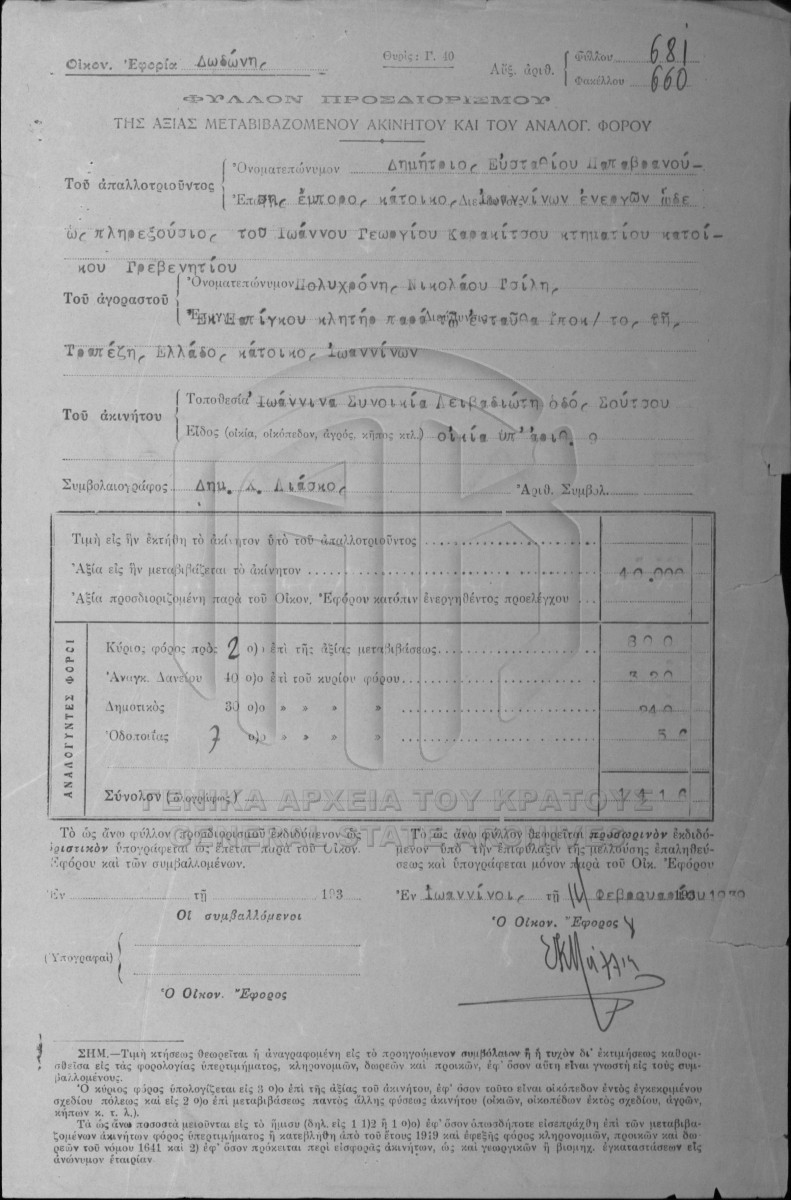 Οἰκον. Ἐφορία Δωδώνης
Θυρίς: Γ. 40
Αὔξ. ἀριθ. Φύλλου 681
Φακέλλου 660
ΦΥΛΛΟΝ ΠΡΟΣΔΙΟΡΙΣΜΟΥ
ΤΗΣ ΑΞΙΑΣ ΜΕΤΑΒΙΒΑΖΟΜΕΝΟΥ ΑΚΙΝΗΤΟΥ ΚΑΙ ΤΟΥ ΑΝΑΛΟΓ. ΦΟΡΟΥ
Τοῦ ἀπαλλοτριοῦντος
Ὀνοματεπώνυμον Δημήτριος Εὐσταθίου Παπαβρανού-
σης ἔμπορος κάτοικος Ἰωαννίνων ἐνεργῶν ὧδε
ὡς πληρεξούσιος τοῦ Ἰωάννου Γεωργίου Καρακίτσου κτηματίου κατοί-
κου Γρεβενητίου
Τοῦ ἀγοραστοῦ
Ὀνοματεπώνυμον Πολυχρόνης Νικολάου Τσίλης
Ἐκ Παπίγκου κλητήρ παρά τῷ ἐνταῦθα Ὑποκ/τος τῆς
Τραπέζης Ελλάδος κάτοικος Ἰωαννίνων
Τοῦ ἀκινήτου
Τοποθεσία Ἰωάννινα Συνοικία Λειβαδιώτη ὁδός Σούτσου
Εἶδος (οἰκία, οἰκόπεδον, ἀγρός, κῆπος κτλ.) οἰκία ὑπ'ἀριθ. 9
Συμβολαιογράφος Δημ. Χ. Λιάσκος Ἀριθ. Συμβολ.
Τιμὴ εἰς ἣν ἐκτήθη τὸ ἀκίνητον ὑπὸ τοῦ ἀπαλλοτριοῦντος
Ἀξία εἰς ἣν μεταβιβάζεται τὸ ἀκίνητον 40.000
Ἀξία προσδιοριζομένη παρὰ τοῦ Οἰκον. Ἐφόρου κατόπιν ἐνεργηθέντος προελέγχου
ΑΝΑΛΟΓΟΥΝΤΕΣ ΦΟΡΟΙ
Κύριος φόρος πρὸς 2 ο)ο ἐπὶ τῆς ἀξίας μεταβιβάσεως 800
Ἀναγκ. Δανείου 40 ο)ο ἐπὶ τοῦ κυρίου φόρου 320
Δημοτικὸς 30 ο)ο » » » » 240
Ὁδοποιίας 7 ο)ο » » » » 56
Σύνολον (ὁλογράφως) 1416
ΓΕΝΙΚΑ ΑΡΧΕΙΑ ΤΟΥ ΚΡΑΤΟΥΣ
Τὸ ὡς ἄνω φύλλον προσδιορισμοῦ ἐκδιδόμενον ὡς
ὁριστικὸν ὑπογράφεται ὡς ἕπεται παρὰ τοῦ Οἰκον.
Ἐφόρου καὶ τῶν συμβαλλομένων.
Ἐν τῇ 193
Οἱ συμβαλλόμενοι
(Ὑπογραφαὶ)
Ὁ Οἰκον. Ἔφορος
Τὸ ὡς ἄνω φύλλον θεωρεῖται προσωρινὸν ἐκδιδό-
μενον ὑπὸ τὴν ἐπιφύλαξιν τῆς μελλούσης ἐπαληθεύ-
σεως καὶ ὑπογράφεται μόνον παρὰ τοῦ Οἰκ. Ἐφόρου
Ἐν Ἰωαννίνοις τῇ Φεβρουαρίου
Ὁ Οἰκον. Ἔφορος
ΣΗΜ.—Τιμὴ κτήσεως θεωρεῖται ἡ ἀναγραφομένη εἰς τὸ προηγούμενον συμβόλαιον ἢ ἡ τυχὸν δι' ἐκτιμήσεως καθορι-
σθεῖσα εἰς τὰς φορολογίας ὑπερτιμήματος, κληρονομιῶν, δωρεῶν καὶ προικῶν, ἐφ' ὅσον αὕτη εἶναι γνωστὴ εἰς τοὺς συμ-
βαλλομένους.
Ὁ κύριος φόρος ὑπολογίζεται εἰς 3 ο)ο ἐπὶ τῆς ἀξίας τοῦ ἀκινήτου, ἐφ' ὅσον τοῦτο εἶναι οἰκόπεδον ἐντὸς ἐγκεκριμένου
σχεδίου πόλεως καὶ εἰς 2 ο)ο ἐπὶ μεταβιβάσεως παντὸς ἄλλης φύσεως ἀκινήτου (οἰκιῶν, οἰκοπέδων ἐκτὸς σχεδίου, ἀγρῶν,
κήπων κ. τ. λ.).
Τὰ ὡς ἄνω ποσοστὰ μειοῦνται εἰς τὸ ἥμισυ (δηλ. εἰς 1 1)2 ἢ 1 ο)ο) ἐφ' ὅσον ὁπωσδήποτε εἰσεπράχθη ἐπὶ τῶν μεταβιβα-
ζομένων ἀκινήτων φόρος ὑπερτιμήματος ἢ κατεβλήθη ἀπὸ τοῦ ἔτους 1919 καὶ ἐφεξῆς φόρος κληρονομιῶν, προικῶν καὶ δω-
ρεῶν τοῦ νόμου 1641 καὶ 2) ἐφ' ὅσον πρόκειται περὶ εἰσφορᾶς ἀκινήτων, ὡς καὶ γεωργικῶν ἢ βιομηχ. ἐγκαταστάσεων εἰς
ἀνώνυμον ἑταιρίαν